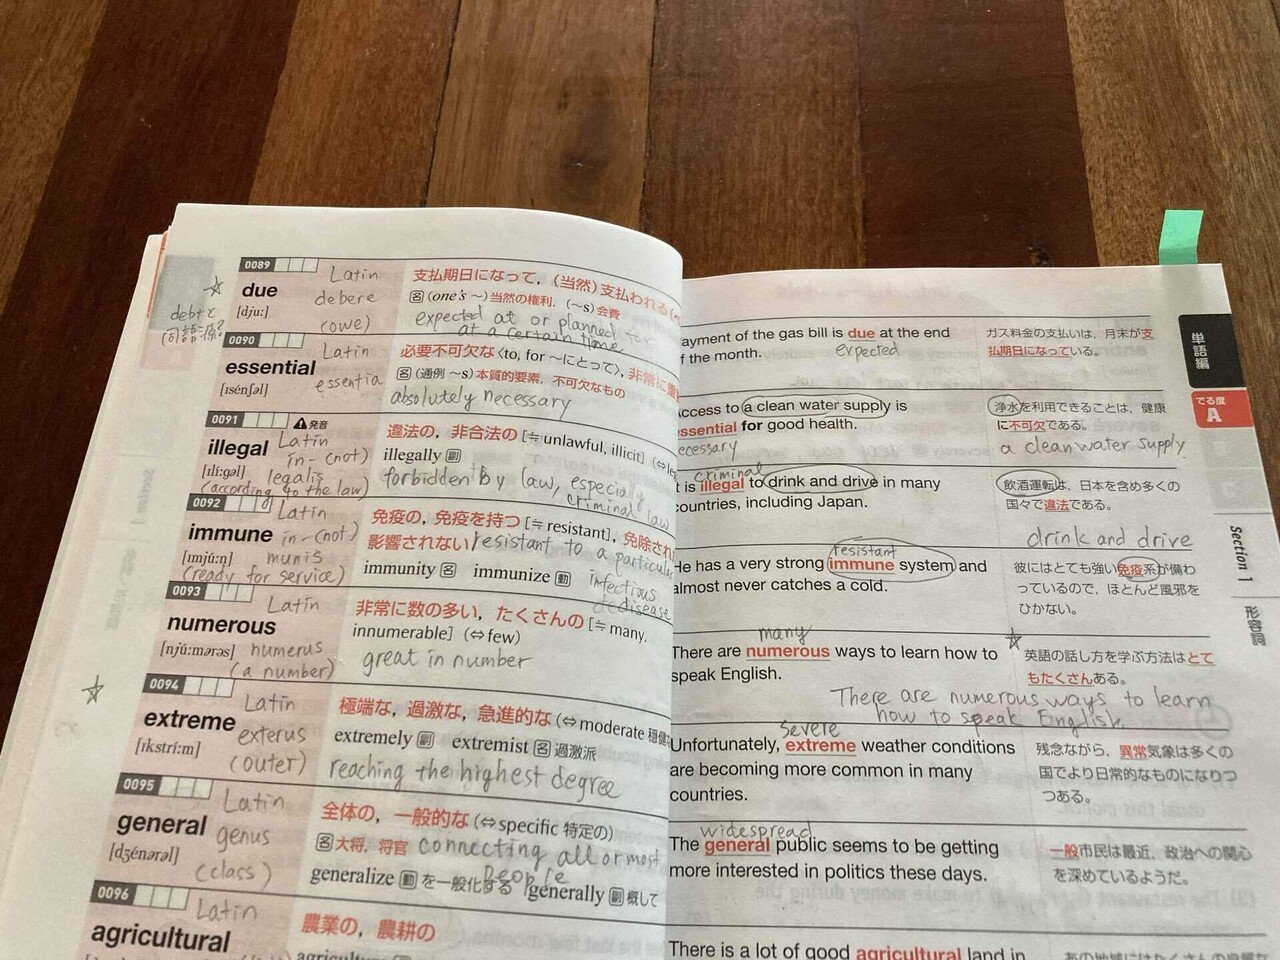 0089
due
[dju:]
Latin
debere
(owe)
debtと
同語源?
支払期日になって，(当然)支払われる
名 (one's ～) 当然の権利，(～s) 会費
expected at or planned for
at a certain time
0090
essential
[ɪsénʃəl]
Latin
essentia
必要不可欠な〈to, for ～にとって〉，非常に重
名 (通例 ～s) 本質的要素，不可欠なもの
absolutely necessary
0091
発音
illegal
[ɪlí:gəl]
Latin
in- (not)
legalis
(according to the law)
違法の，非合法の [≒ unlawful, illicit] (⇔
illegally 副
forbidden by law, especially
criminal law
0092
immune
[ɪmjú:n]
Latin
in- (not)
munis
(ready for service)
免疫の，免疫を持つ [≒ resistant]，免除され
影響されない
resistant to a particular
infectious
disease
immunity 名 immunize 動
0093
numerous
[njú:mərəs]
Latin
numerus
(a number)
非常に数の多い，たくさんの [≒ many,
innumerable] (⇔ few)
great in number
0094
extreme
[ɪkstrí:m]
Latin
exterus
(outer)
極端な，過激な，急進的な (⇔ moderate 穏健
extremely 副 extremist 名 過激派
reaching the highest degree
0095
general
[dʒénərəl]
Latin
genus
(class)
全体の，一般的な (⇔ specific 特定の)
名 大将，将官
connecting all or most
people
generalize 動 を一般化する generally 副 概して
0096
agricultural
Latin
農業の，農耕の
ayment of the gas bill is due at the end
f the month.
expected
ガス料金の支払いは，月末が支
払期日になっている。
ccess to a clean water supply is
ssential for good health.
ecessary
浄水を利用できることは，健康
に不可欠である。
a clean water supply
criminal
t is illegal to drink and drive in many
countries, including Japan.
飲酒運転は，日本を含め多くの
国々で違法である。
drink and drive
resistant
He has a very strong immune system and
almost never catches a cold.
彼にはとても強い免疫系が備わ
っているので，ほとんど風邪を
ひかない。
many
There are numerous ways to learn how to
speak English.
英語の話し方を学ぶ方法はとて
もたくさんある。
There are numerous ways to learn
how to speak English.
severe
Unfortunately, extreme weather conditions
are becoming more common in many
countries.
残念ながら，異常気象は多くの
国でより日常的なものになりつ
つある。
widespread
The general public seems to be getting
more interested in politics these days.
一般市民は最近，政治への関心
を深めているようだ。
There is a lot of good agricultural land in
単語編
でる度
A
Section 1
形容詞